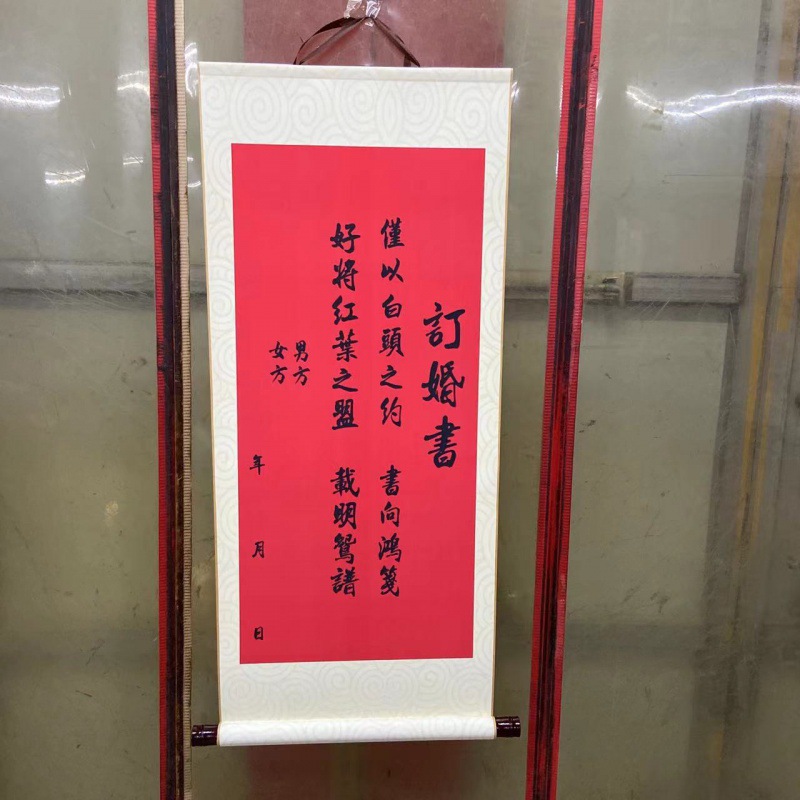 訂婚書
僅以白頭之約 書向鴻箋
好將红葉之盟 載明鴛譜
男方
女方
年 月 日